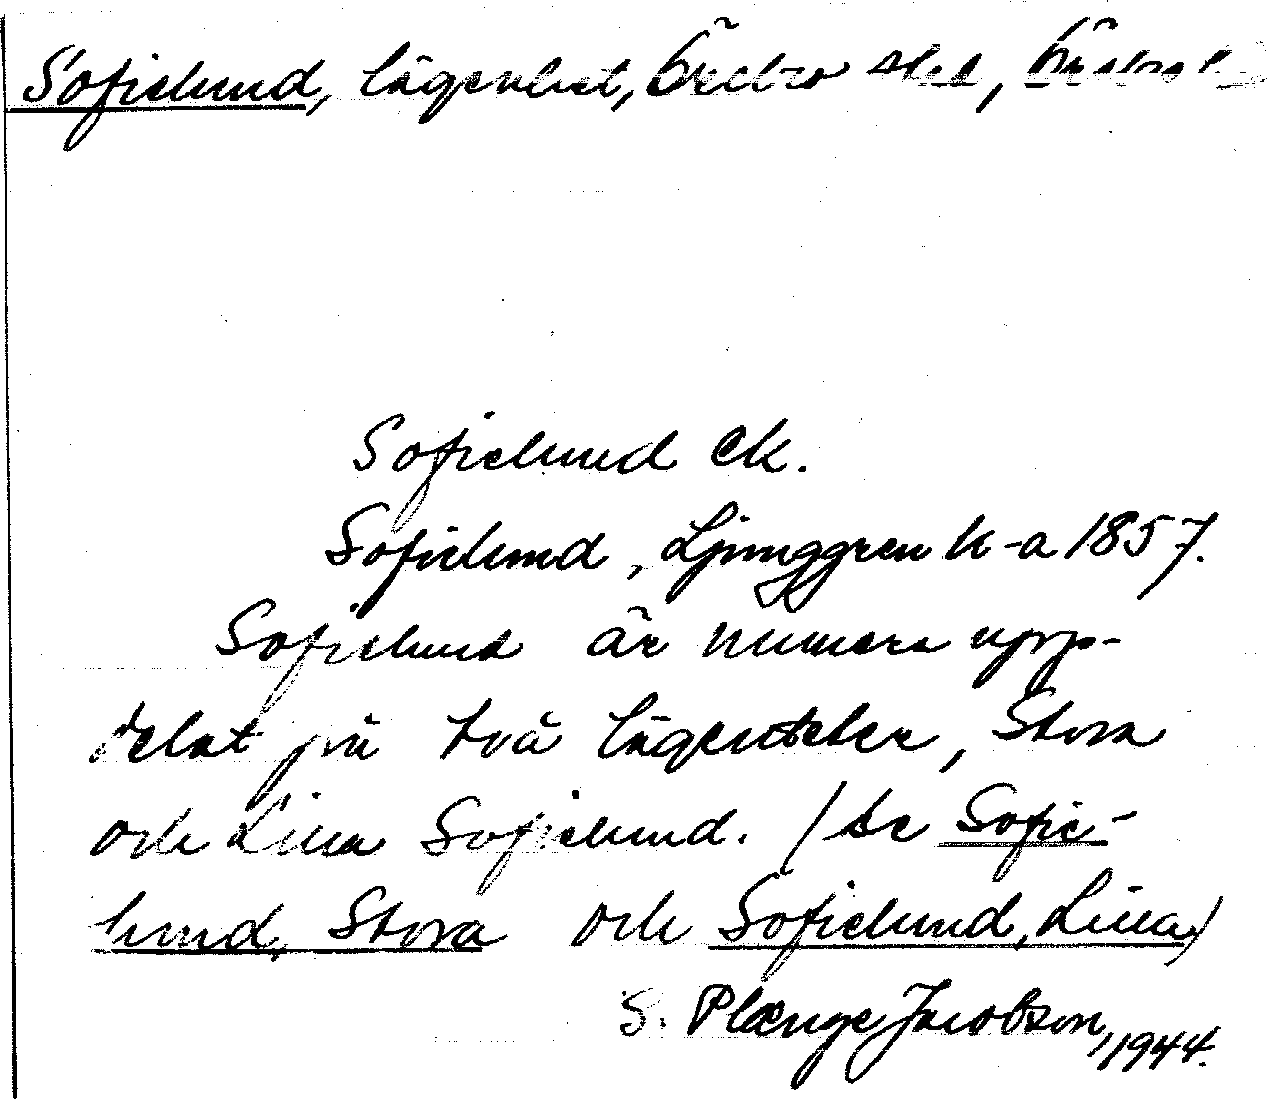 Sofielund, lägenhet, Örebro stad, Örebro l
Sofielund ek.
Sofielund, Ljunggren k-a 1857.
Sofielund är numera upp-
delat på två lägenheter, Stora
och Lilla Sofielund. /se Sofie-
lund, Stora och Sofielund, Lilla/
S. Plænge Jacobson, 1944.